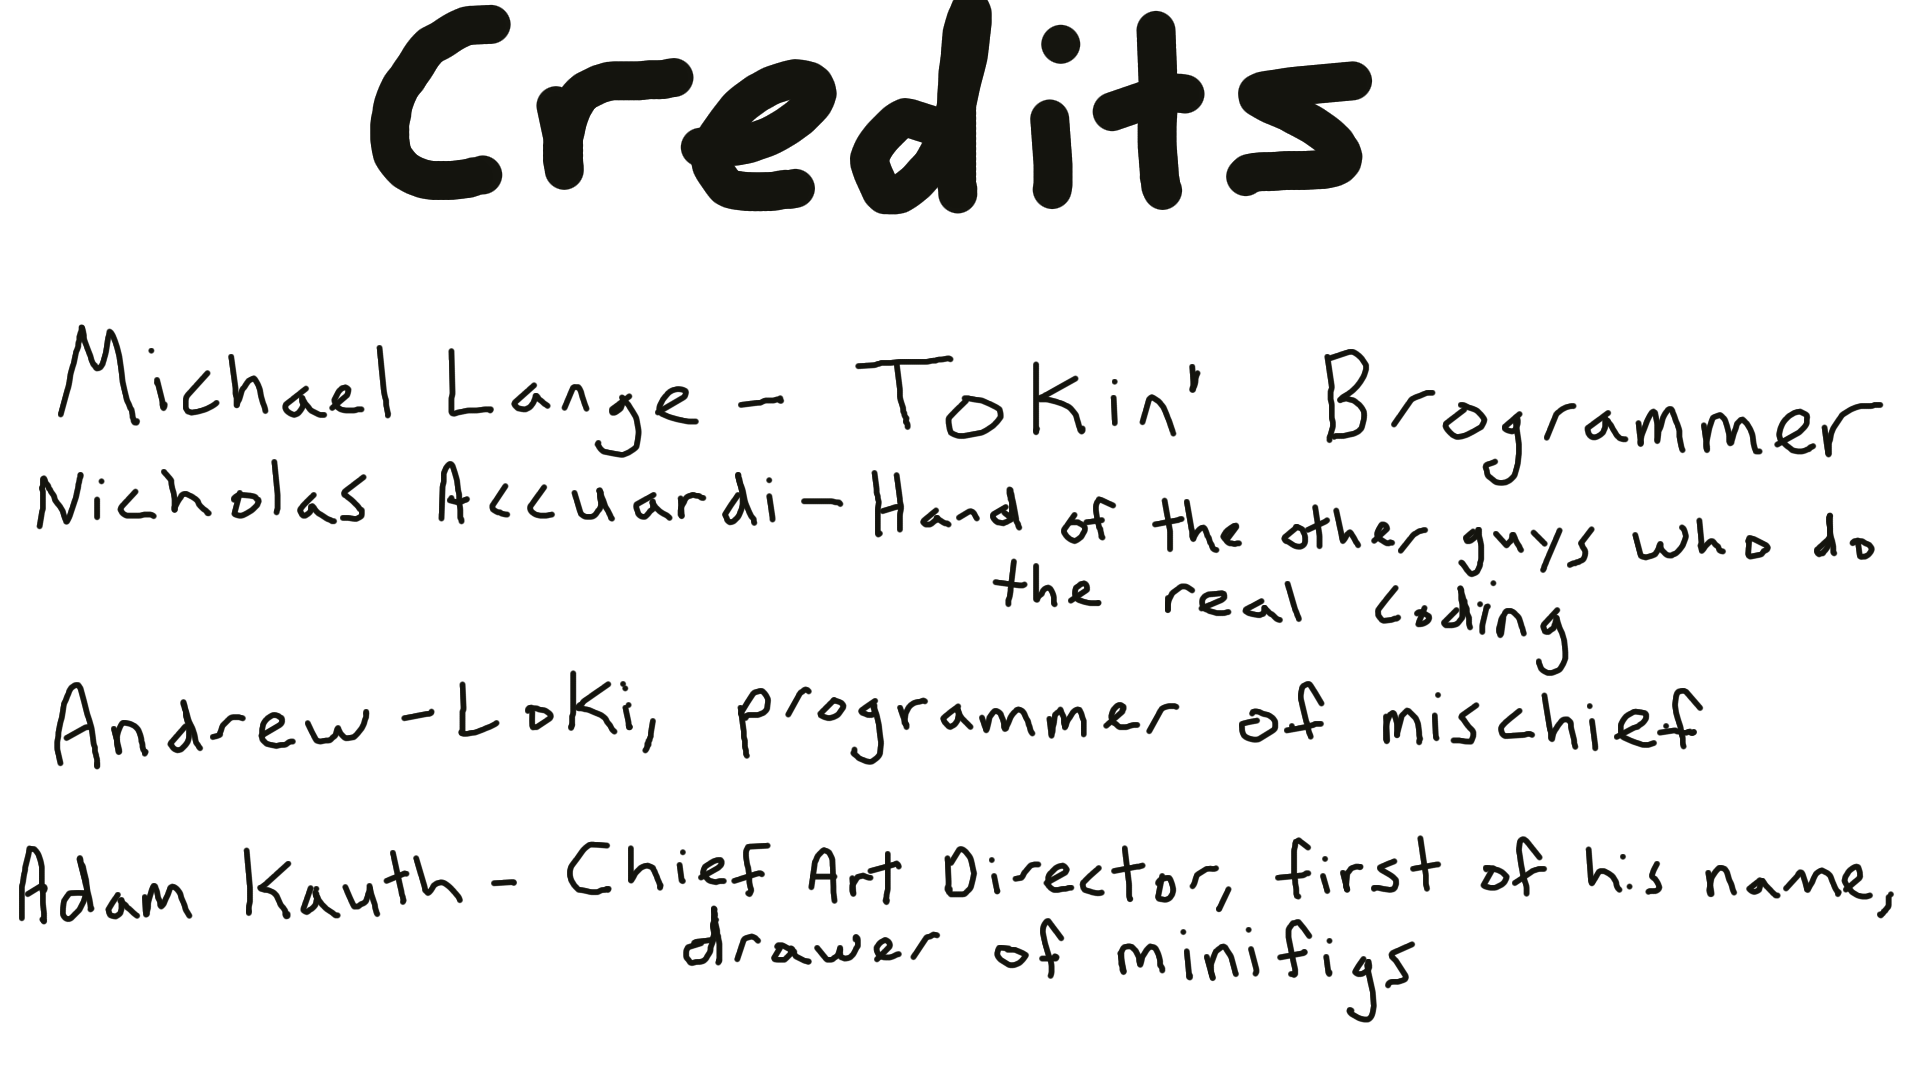 Credits
Michael Lange - Tokin' Brogrammer
Nicholas Accuardi - Hand of the other guys who do
the real coding
Andrew - Loki, programmer of mischief
Adam Kauth - Chief Art Director, first of his name,
drawer of minifigs